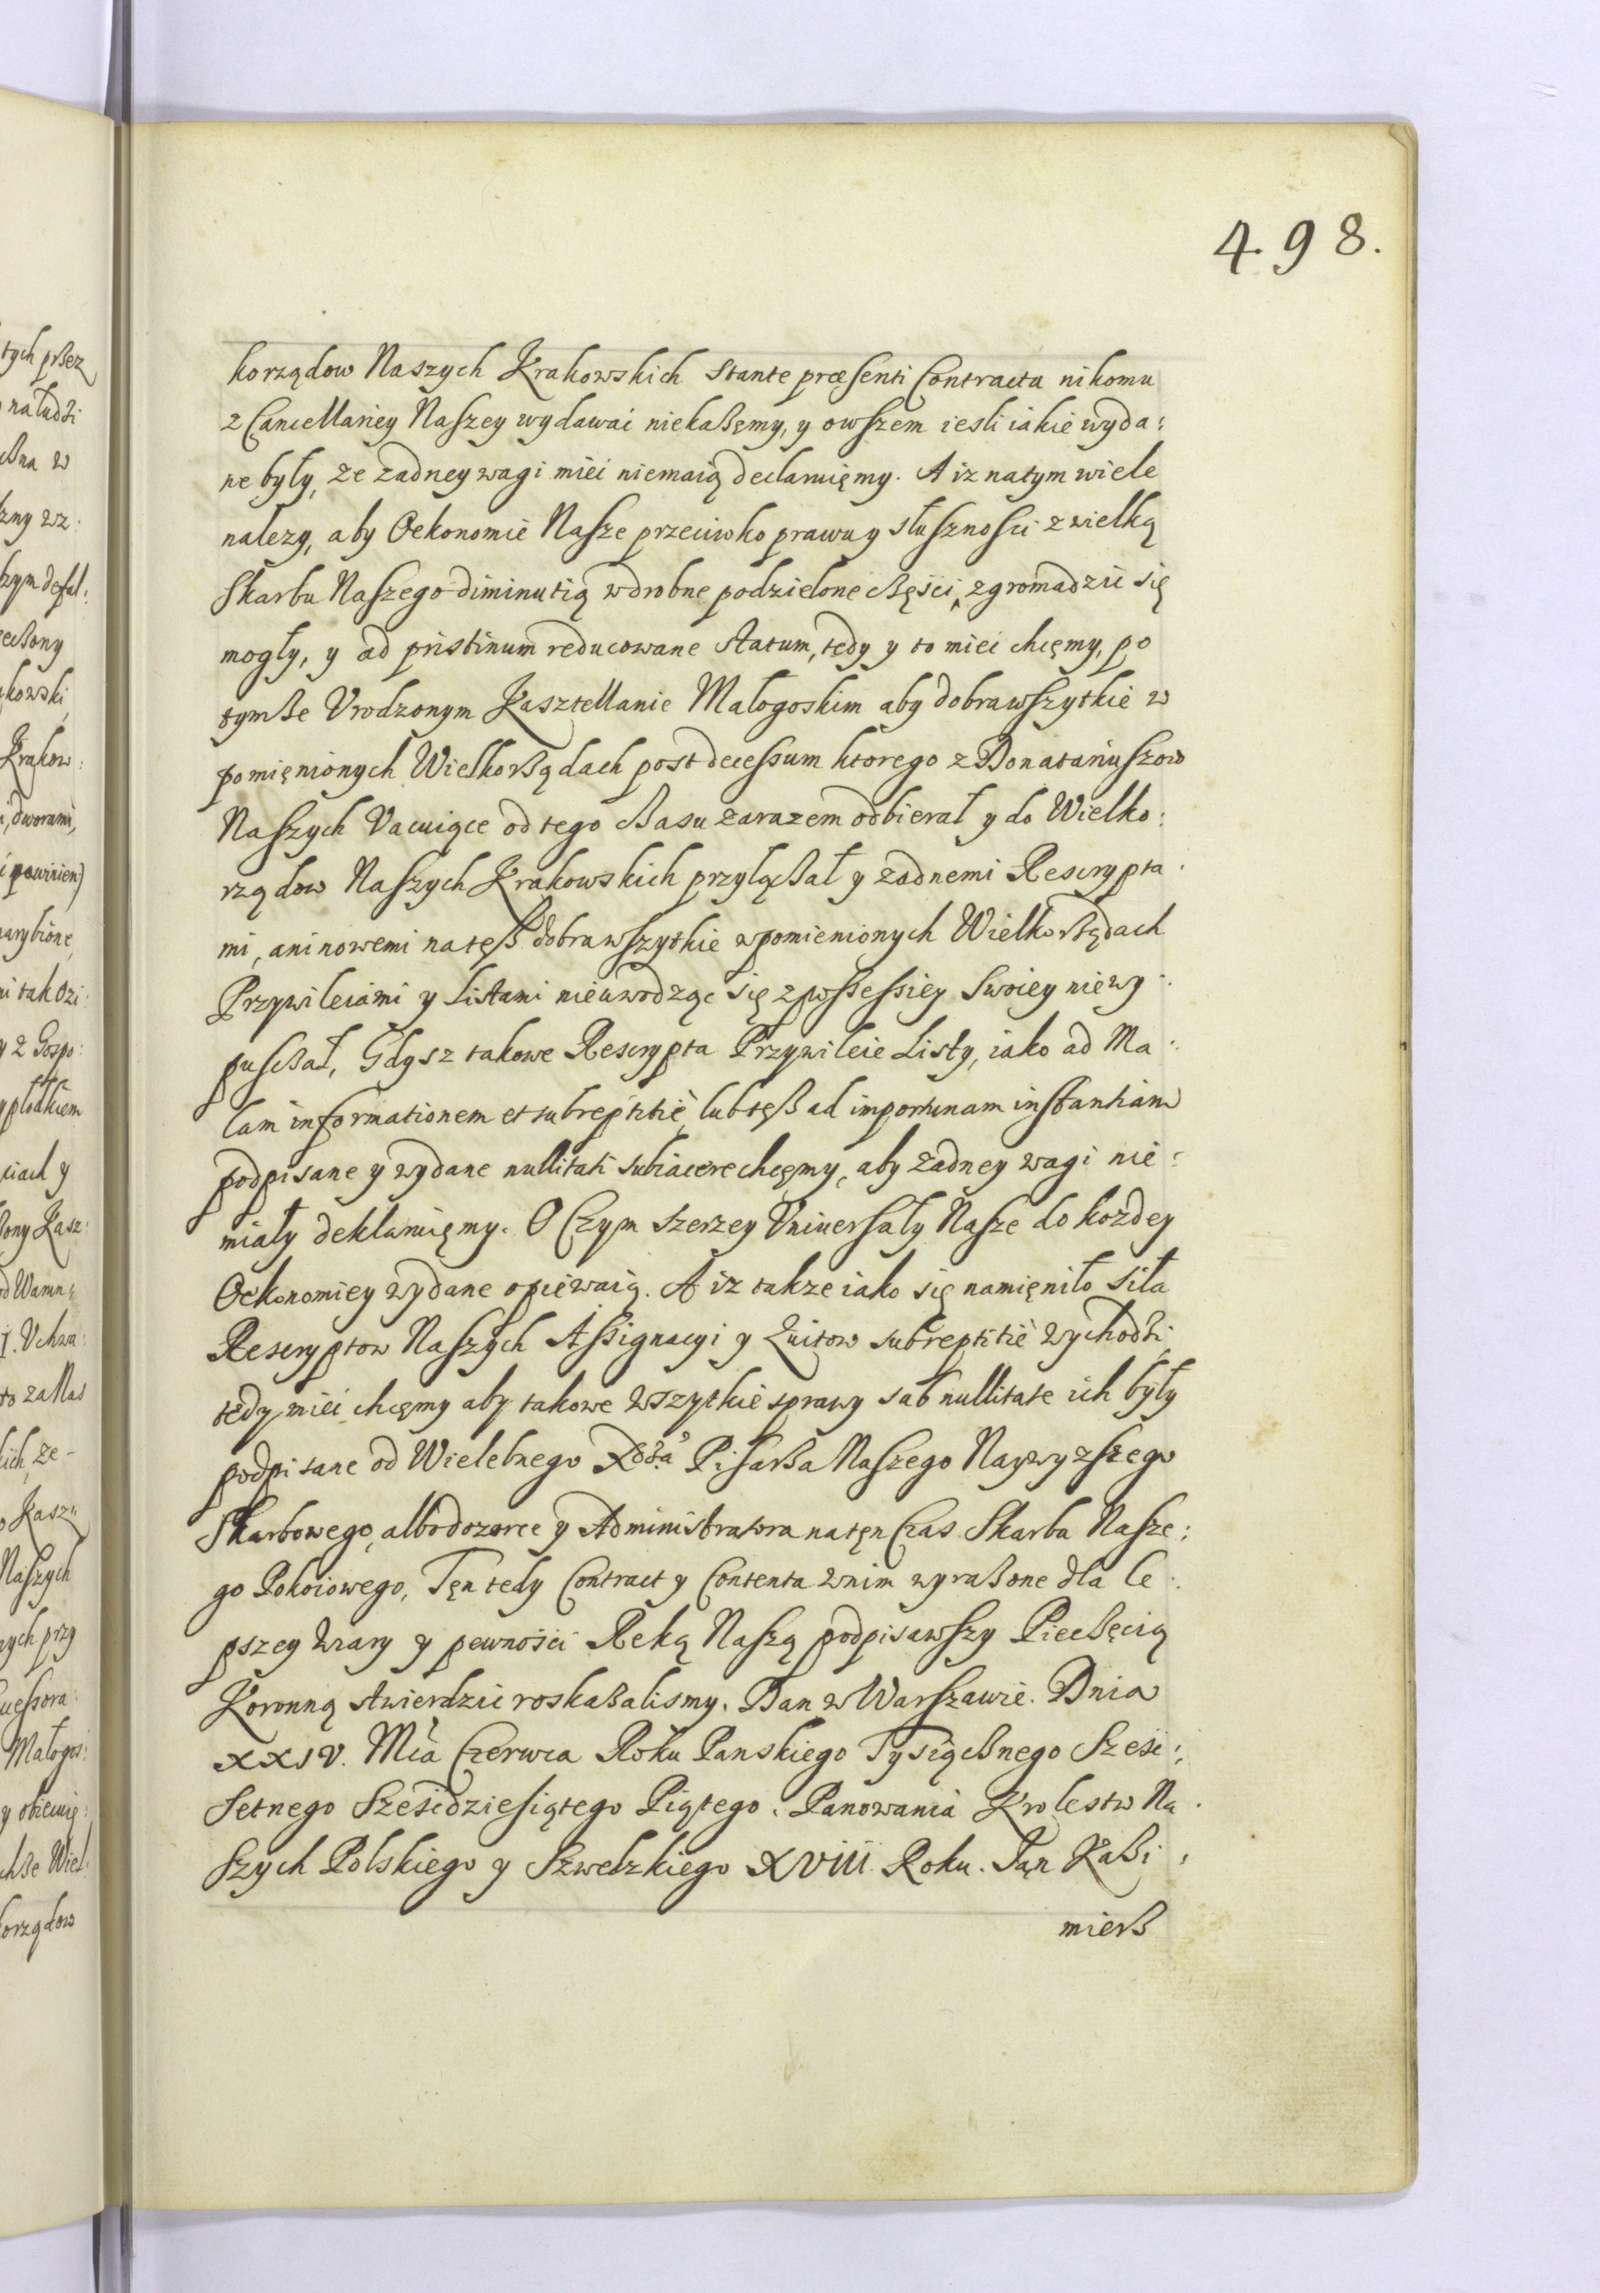 498.
korządow Naszych Krakowskich stante præsenti Contractu nikomu
z Cancellariey Naszey wydawać niekaßęmy, y owszem iesli iakie wyda:
ne były, ze zadney wagi mieć niemaią declaruięmy. A iz natym wiele
nalezy, aby Oekonomie Nasze przeciwko prawu y słusznosci z wielką
Skarbu Naszego diminutią wdrobne podzielone cßęsci, zgromadzić się
mogły, y ad pristinum reducowane statum, tedy y to mieć chcęmy, po
tymße Vrodzonym Kasztellanie Małogoskim aby dobra wszytkie w
pomięnionych Wielkorßądach post decessum ktorego z Donatariuszow
Naszych Vacuiące od tego cßasu zarazem odbierał y do Wielko:
rządow Naszych Krakowskich przyłącßał y zadnemi Rescrypta:
mi, ani nowemi na teß dobra wszytkie wpomienionych Wielkorßędach
Przywileiami y Listami nieuwodząc się z possessiey swoiey niewy:
puscßał, Gdysz takowe Rescrypta Przywileie Listy, iako ad Ma:
lam informationem et subreptitiè, lub teß ad importunam instantiam
podpisane y wydane nullitati subiacere chcęmy, aby zadney wagi nie:
miały deklaruięmy. O Czym szerzey Vniuersały Nasze do kozdey
Oekonomiey wydane opiewaią. A iz takze iako się namięniło siła
Rescryptow Naszych Assignacyi y Quitow subreptitiè wychodßi,
tedy mieć chcęmy aby takowe wszytkie sprawy sub nullitate ich były
podpisane od Wielebnego Xdßa Pisarßa Naszego Naywyzszego
Skarbowego, albo dozorce y Administratora na tęn Czas Skarbu Nasze:
go Pokoiowego, Tęn tedy Contract y Contenta w nim wyraßone dla le:
pszey Wiary y pewności Ręką Naszą podpisawszy Piecßęcią
Koronną stwierdzić roskaßalismy. Dan w Warszawie. Dnia
XXIV. Mcà Czerwca Roku Panskiego Tysiącßnego Sześć:
setnego Szescdziesiątego Piątego. Panowania Krolestw Na:
szych Polskiego y Szwedzkiego XVIII. Roku. Jąn Kaßi:
mierß